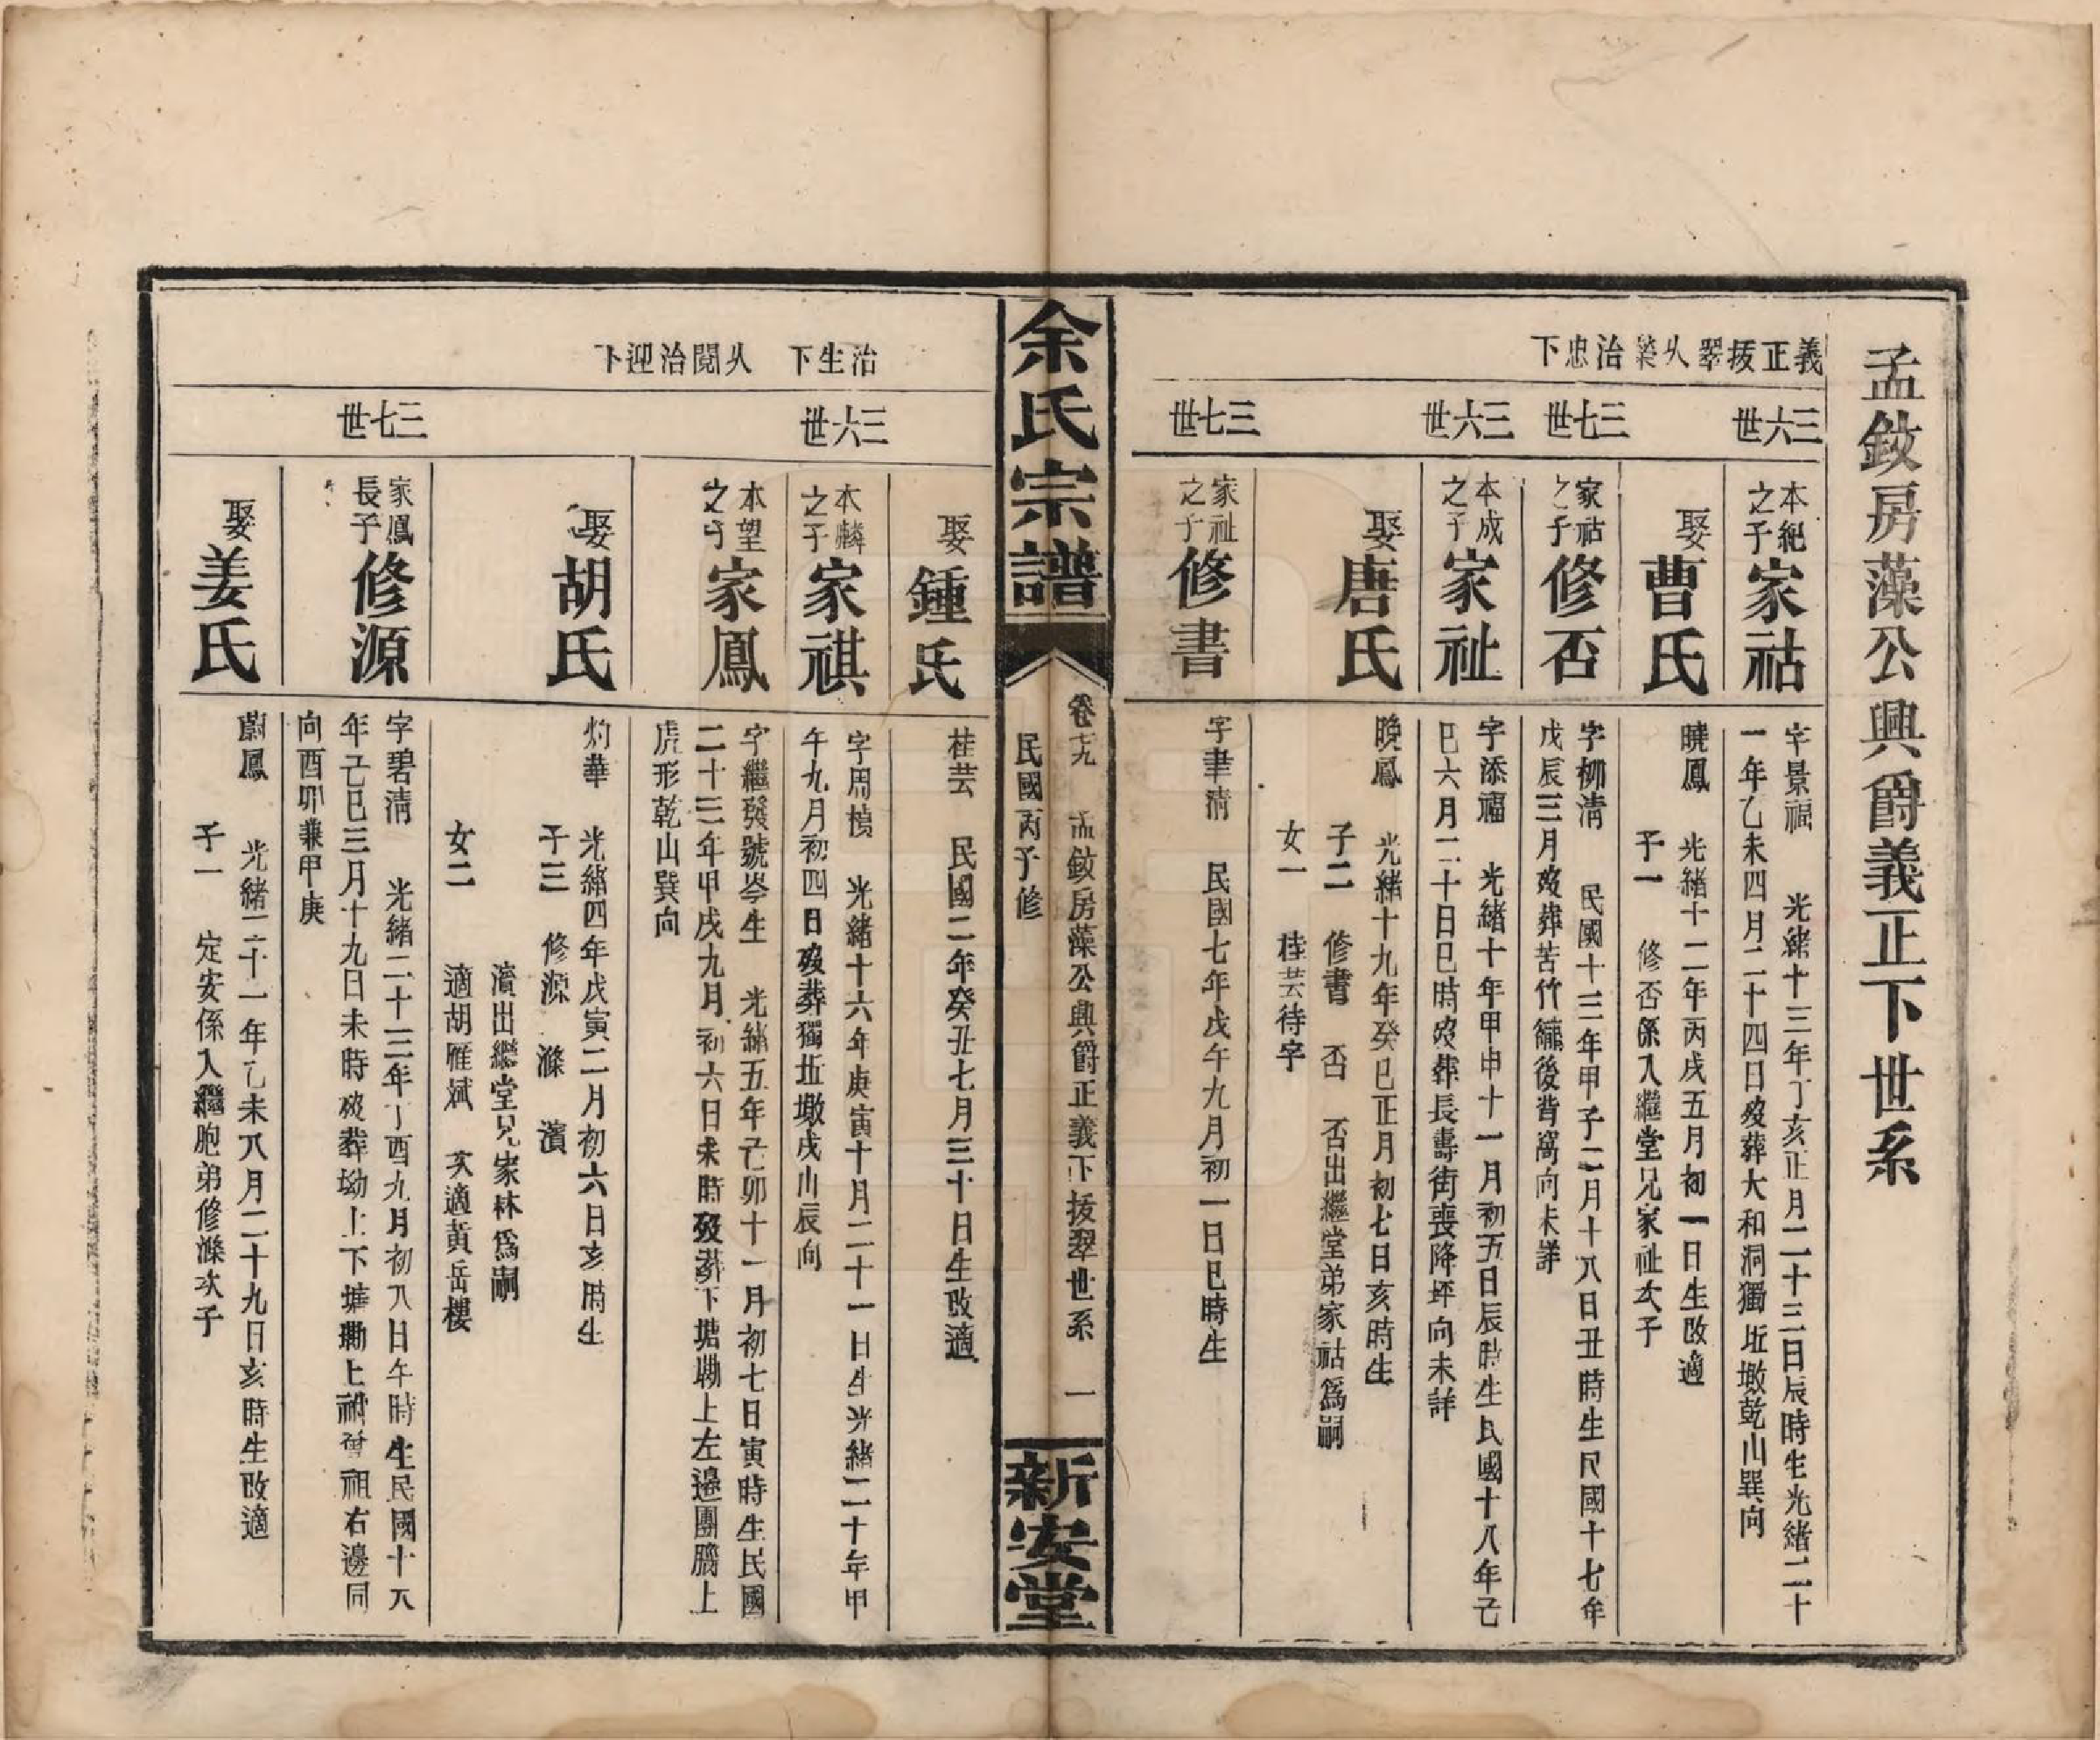 孟鈘房藻公興爵義正下世系
義正拔翠人榮治忠下
三六世
本紀之子
家祜
字景福 光緒十三年丁亥正月二十三日辰時生光緒二十
一年乙未四月二十四日歿葬大和洞獨坵墩乾山巽向
娶
曹氏
曉鳳 光緒十二年丙戌五月初一日生改適
子一 修否係入繼堂兄家祉次子
三七世
家祜之子
修否
字柳清 民國十三年甲子二月十八日丑時生民國十七年
戊辰三月歿葬苦竹龍後背窩向未詳
三六世
本成之子
家祉
字添福 光緒十年甲申十一月初五日辰時生民國十八年己
巳六月二十日巳時歿葬長壽街喪降坪向未詳
娶
唐氏
晚鳳 光緒十九年癸巳正月初七日亥時生
子二 修書 否 否出繼堂弟家祜為嗣
女一 桂芸待字
三七世
家祉之子
修書
字聿清 民國七年戊午九月初一日巳時生
余氏宗譜
卷九 孟鈘房藻公興爵正義下拔翠世系 一
民國丙子修
新安堂
娶
鍾氏
桂芸 民國二年癸丑七月三十日生改適
治生下
三六世
本麟之子
家祺
字周楨 光緒十六年庚寅十月二十一日生光緒二十年甲
午九月初四日歿葬獨坵墩戌山辰向
人閱治迎下
本望之子
家鳳
字繼發號岑生 光緒五年己卯十一月初七日寅時生民國
二十三年甲戌九月初六日未時歿葬下塘塅上左邊團塅上
虎形乾山巽向
娶
胡氏
灼華 光緒四年戊寅二月初六日亥時生
子三 修源 滌 濱
濱出繼堂兄家林為嗣
女二 適胡雁斌 次適黃岳樓
三七世
家鳳長子
修源
字碧清 光緒二十三年丁酉九月初八日午時生民國十八
年己巳三月十九日未時歿葬坳上下塘塅上祔曾祖右邊同
向酉卯兼甲庚
娶
姜氏
蔚鳳 光緒二十一年乙未八月二十九日亥時生改適
子一 定安係入繼胞弟修滌次子